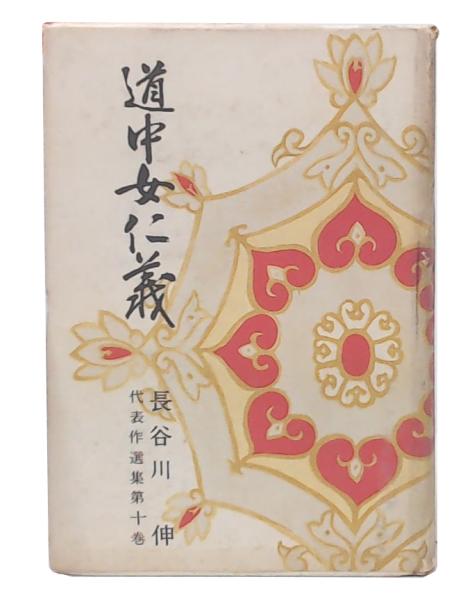 道中女仁義
長谷川 伸
代表作選集第十巻